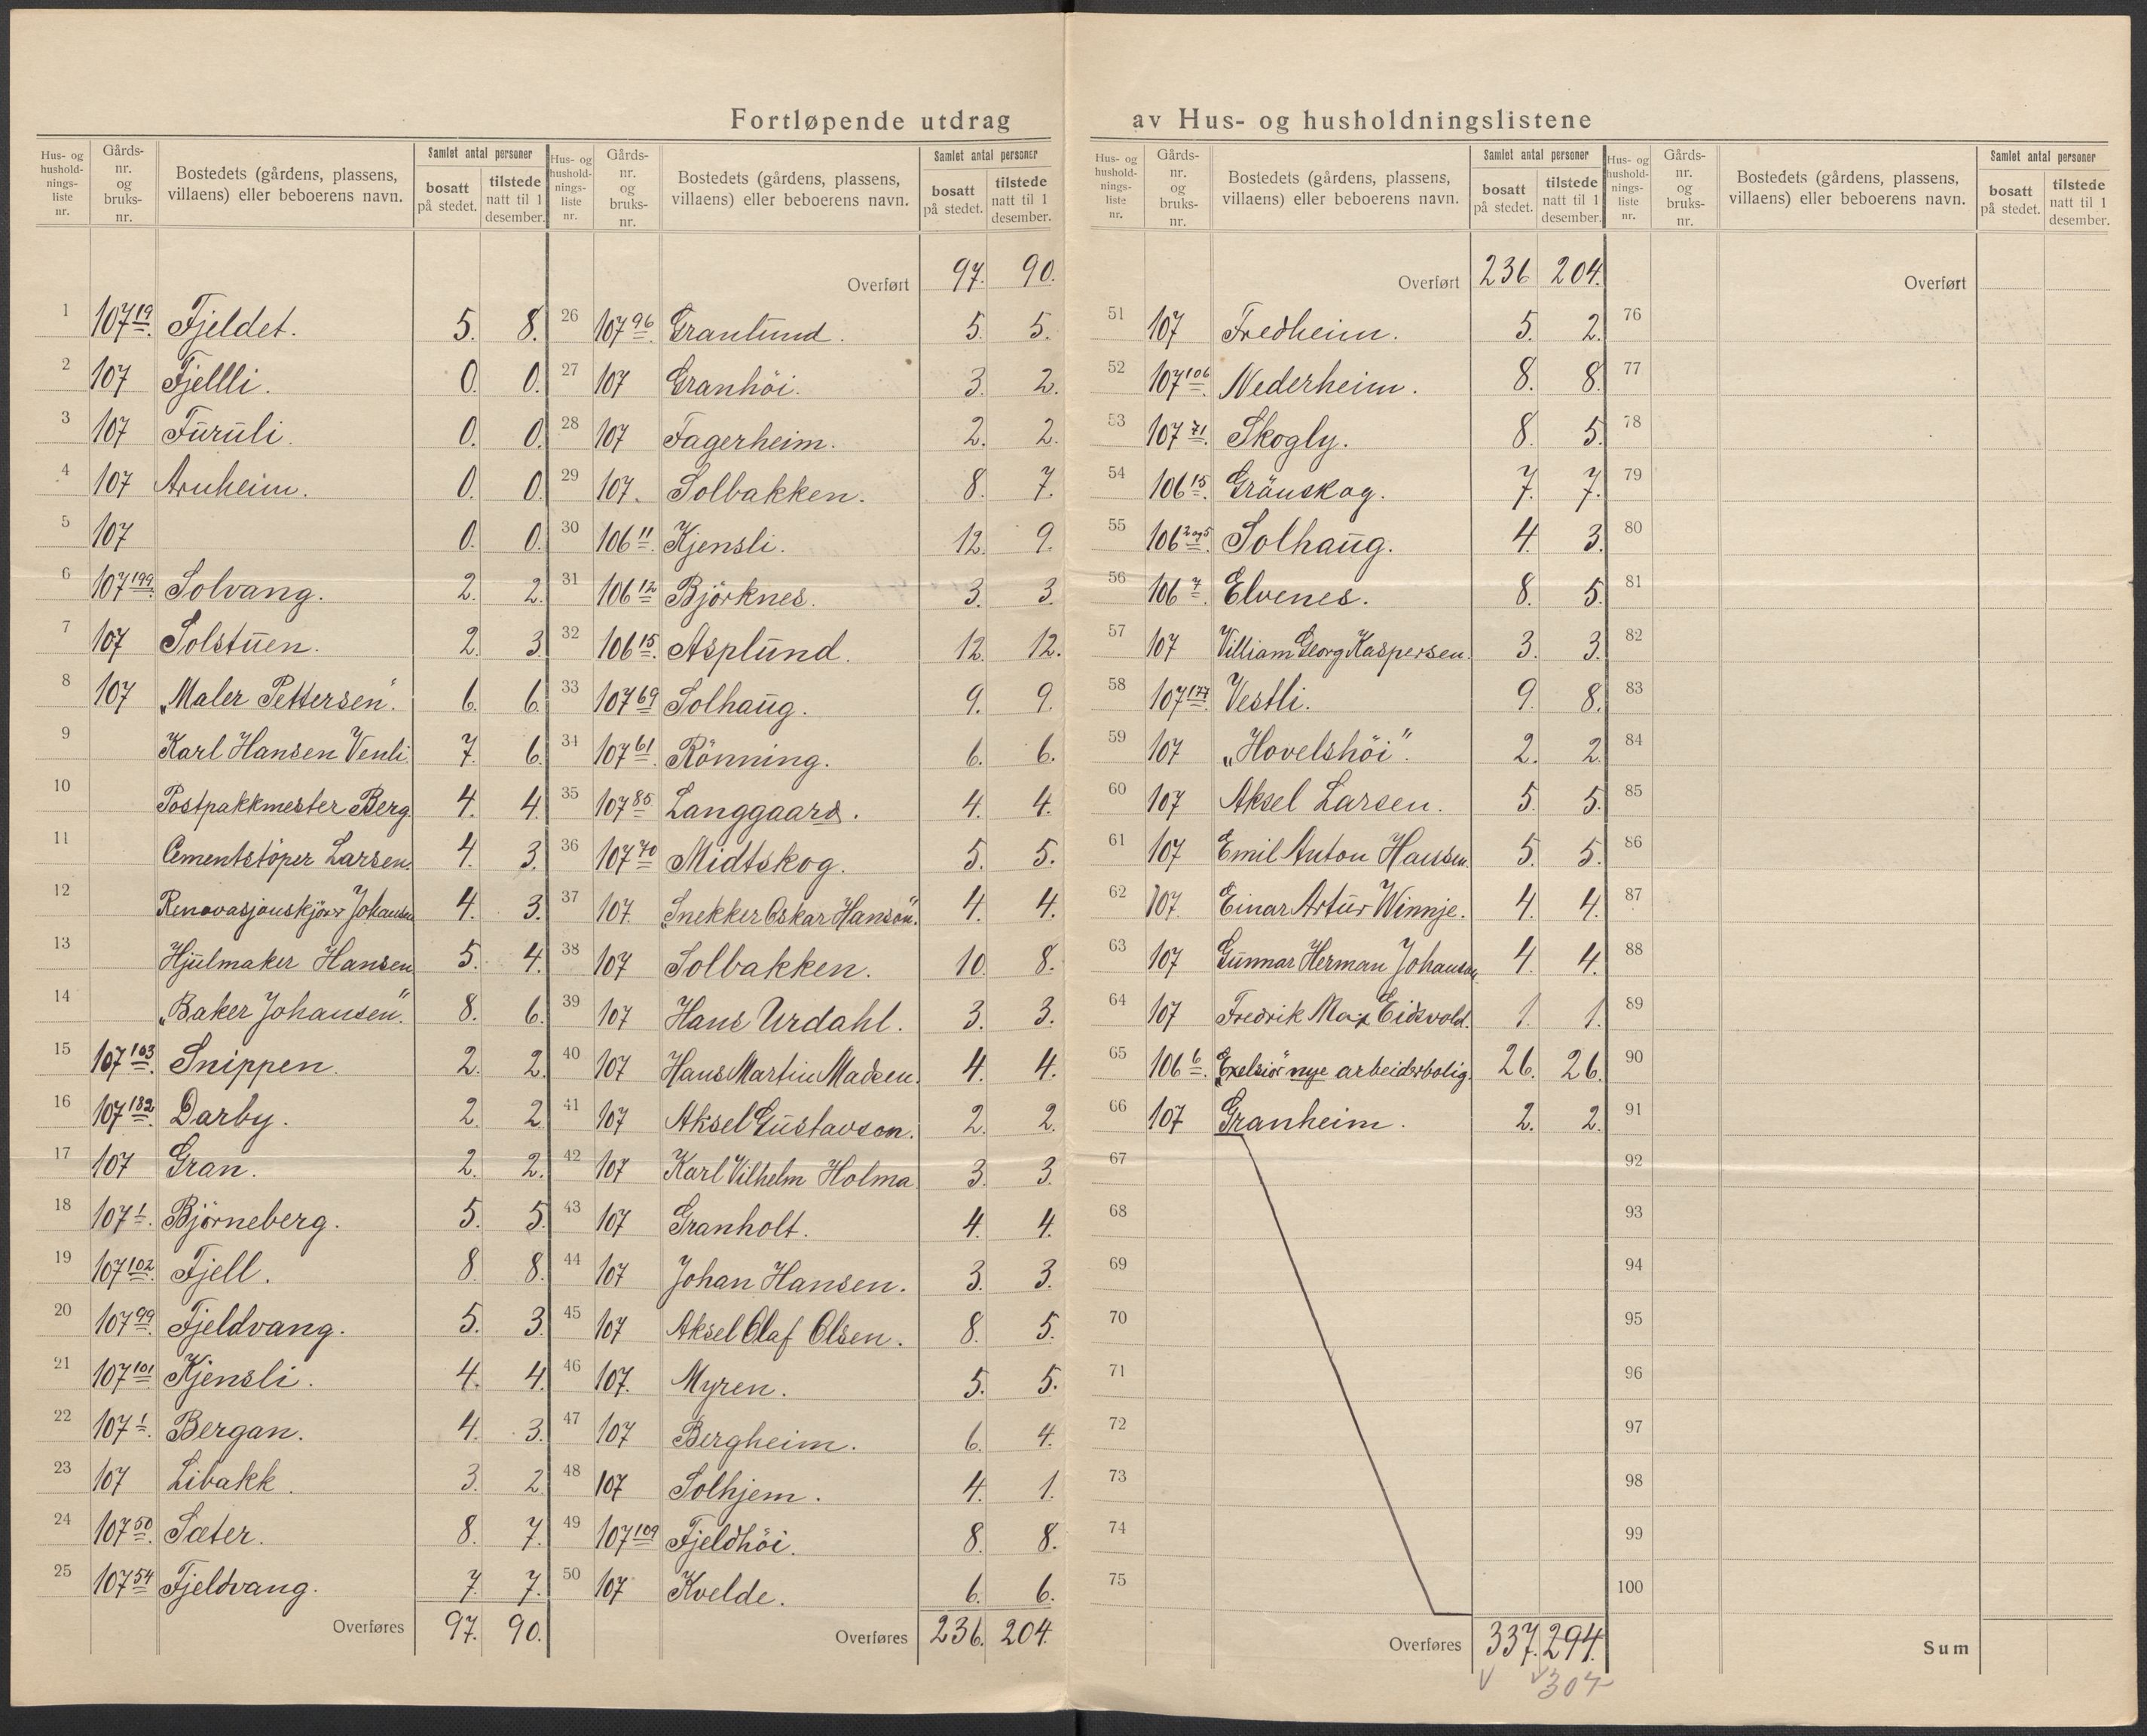 Fortløpende utdrag av Hus- og husholdningslistene
Hus- og hushold-nings-liste nr. | Gårds-nr. og bruks-nr. | Bostedets (gårdens, plassens, villaens) eller beboerens navn. | Samlet antal personer | bosatt på stedet. | tilstede natt til 1 desember.
1 107 19 Fjeldet. 5. 8.
2 107 Fjellli. 0. 0.
3 107 Furuli. 0. 0.
4 107 Arnheim. 0. 0.
5 107 0. 0.
6 107 199 Solvang. 2. 2.
7 107 Solstuen. 2. 3.
8 107 „Maler Pettersen". 6. 6.
9 Karl Hansen Venli. 7. 6.
10 Postpakkmester Berg. 4. 4.
11 Cementstöper Larsen. 4. 3.
12 Renovasjonskjörer Johansen 4. 3.
13 Hjulmaker Hansen 5. 4.
14 „Baker Johansen". 8. 6.
15 107 103 Snippen. 2. 2.
16 107 182 Darby. 2. 2.
17 107 Gran. 2. 2.
18 107 1. Björneberg. 5. 5.
19 107 102 Fjell. 8. 8.
20 107 99 Fjeldvang. 5. 3.
21 107 101 Kjensli. 4. 4.
22 107 1. Bergan. 4. 3.
23 107 Libakk. 3. 2.
24 107 50 Sæter. 8. 7.
25 107 54 Fjeldvang. 7. 7.
Overføres 97. 90.
Hus- og hushold-nings-liste nr. | Gårds-nr. og bruks-nr. | Bostedets (gårdens, plassens, villaens) eller beboerens navn. | Samlet antal personer | bosatt på stedet. | tilstede natt til 1 desember.
Overført 97. 90.
26 107 96 Granlund. 5. 5.
27 107 Granhöi. 3. 2.
28 107 Fagerheim. 2. 2.
29 107. Solbakken. 8. 7.
30 106 11 Kjensli. 12. 9.
31 106 12 Björknes. 3. 3.
32 106 15 Asplund. 12. 12.
33 107 69 Solhaug. 9. 9.
34 107 61 Rönning. 6. 6.
35 107 85 Langgaard. 4. 4.
36 107 70 Midtskog. 5. 5.
37 107. „Snekker Oskar Hanson". 4. 4.
38 107 Solbakken. 10. 8.
39 107 Hans Urdahl. 3. 3.
40 107 Hans Martin Madsen. 4. 4.
41 107 Aksel Gustavson. 2. 2.
42 107 Karl Vilhelm Holma 3. 3.
43 107 Granholt. 4. 4.
44 107 Johan Hansen. 3. 3.
45 107 Aksel Olaf Olsen. 8. 5.
46 107. Myren. 5. 5.
47 107 Bergheim. 6. 4.
48 107 Solhjem. 4. 1.
49 107 109 Fjeldhöi. 8. 8.
50 107 Kvelde. 6. 6.
Overføres 236. 204.
Hus- og hushold-nings-liste nr. | Gårds-nr. og bruks-nr. | Bostedets (gårdens, plassens, villaens) eller beboerens navn. | Samlet antal personer | bosatt på stedet. | tilstede natt til 1 desember.
Overført 236 204.
51 107 Fredheim. 5. 2.
52 107 106 Nederheim. 8. 8.
53 107 71. Skogly. 8. 5.
54 106 15. Gränskog. 7. 7.
55 106 2 og 5 Solhaug. 4. 3.
56 106 7. Elvenes. 8. 5.
57 107 Villiam Georg Kaspersen. 3. 3.
58 107 177 Vestli. 9. 8.
59 107 „Hovelshöi". 2. 2.
60 107 Aksel Larsen. 5. 5.
61 107 Emil Anton Hansen. 5. 5.
62 107. Einar Artur Winnje. 4. 4.
63 107 Gunnar Herman Johanson 4. 4.
64 107 Fredrik Max Eidsvold. 1. 1.
65 106 6. „Exelsiör" nye arbeiderbolig. 26. 26.
66 107 Granheim. 2. 2.
67
68
69
70
71
72
73
74
75
Overføres 337. 294.
304
Hus- og hushold-nings-liste nr. | Gårds-nr. og bruks-nr. | Bostedets (gårdens, plassens, villaens) eller beboerens navn. | Samlet antal personer | bosatt på stedet. | tilstede natt til 1 desember.
Overført
76
77
78
79
80
81
82
83
84
85
86
87
88
89
90
91
92
93
94
95
96
97
98
99
100
Sum